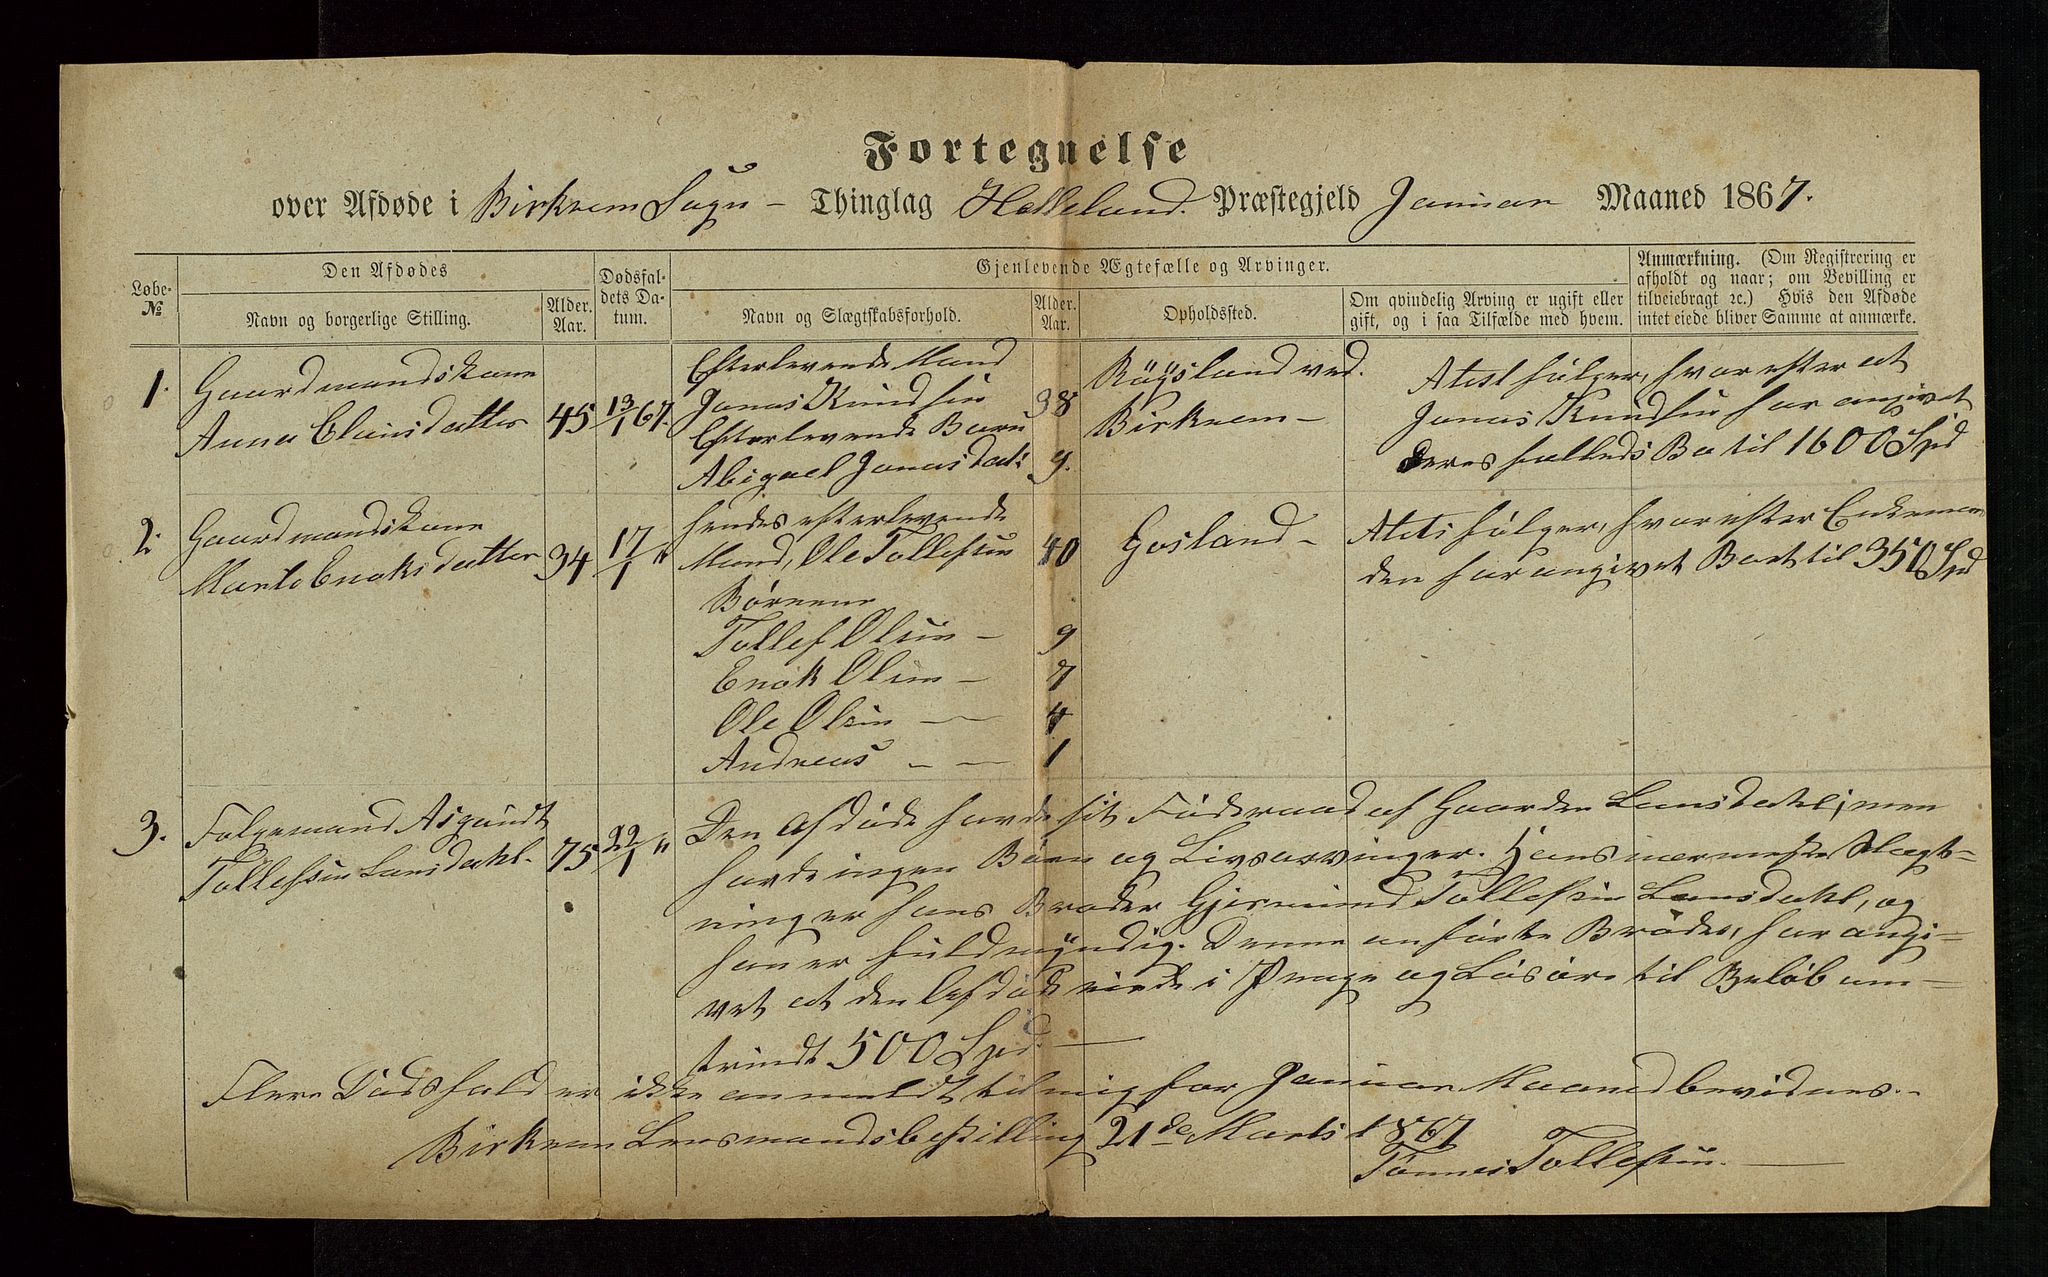 Fortegnelse
over Afdøde i Birkrem Sogn - Thinglag Helleland. Præstegjeld Januar Maaned 1867.
Løbe-
№
Den Afdødes
Navn og borgerlige Stilling.
Alder.
Aar.
Dødsfal-
dets Da-
tum.
Gjenlevende Ægtefælle og Arvinger.
Navn og Slægtskabsforhold.
Alder.
Aar.
Opholdssted.
Om qvindelig Arving er ugift eller
gift, og i saa Tilfælde med hvem.
Anmærkning. (Om Registrering er
afholdt og naar; om Bevilling er
tilveiebragt ꝛc.) Hvis den Afdøde
intet eiede bliver Samme at anmærke.
1.
Gaardmandskone
Anna Clausdatter
45
13/1 67.
Efterlevende Mand
Jonas Knudsen 38
Efterlevende Barn
Abigael Jonasdat: 9.
Røgsland ved.
Birkrem -
Atest følger, hvorefter at
Jonas Knudsen har angivet
deres fælleds Bo til 1600 Spd
2.
Gaardmandskone
Marte Enoksdatter
34
17/1 "
hendes efterlevende
Mand, Ole Tollefsen 40
Børnene
Tollef Olsen - 9
Enok Olsen - 7
Ole Olsen - - 4
Andreas - - 1
Gosland -
Atest følger, hvorefter Enkeman
den har angivet Boet til 350 Spd
3.
Folgemand Asgundt
Tollefsen Lonsdahl.
75
22/1 "
Den Afdøde havde sit Føderaad af Gaarden Lonsdahl; men
havde ingen Børn og Livsarvinger. Hans nærmeste Slægt-
ning er hans Broder Gjermund Tollefsen Lonsdahl, og
han er fuldmyndig. Denne anførte Broder, har angi-
vet at den Afdøde eiede i Penge og Løsøre til Beløb om-
trindt 500 Spd. -
Flere Dødsfald er ikke anmeldt til mig for Januar Maaned bevidnes. -
Birkrem Lensmandsbestilling 21de Marts 1867
Tønnes Tollefsen. -